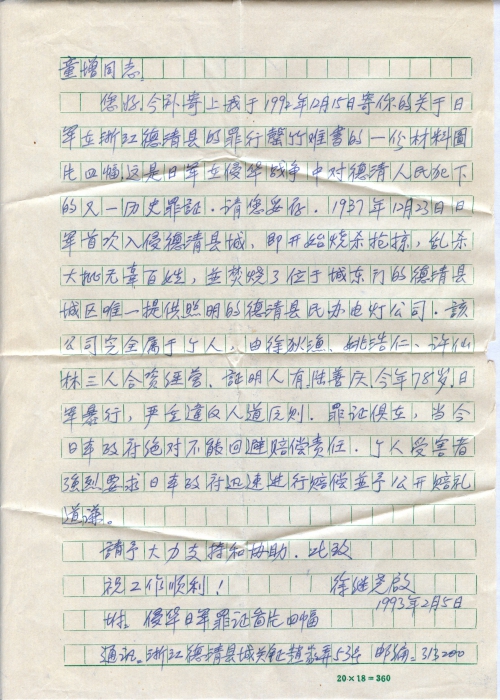 童增同志
您好,今卦寄上我于1992年12月15日寄你的关于日
军在浙江德清县的罪行罄竹难書的一份材料圖
片四幅,这是日军在侵华战争中对德清人民犯下
的又一历史罪証.请您妥存.1937年12月23日日
军首次入侵德清县城,即开始烧杀抢掠,乱杀
大批无辜百姓,並焚烧了位于城东门的德清县
城区唯一提供照明的德清县民办电灯公司.該
公司完全属于个人,由徐狄渔、姚浩仁、许仙
林三人合资经营.証明人有陆善庆,今年78岁.日
军暴行,严重違反人道区则.罪证俱在,当今
日本政府绝对不能回避赔偿责任.个人受害者
强烈要求日本政府迅速进行赔偿並予公开赔礼
道谦。
請予大力支持和协助.此致
祝工作顺利!
徐继尧啟
1993年2月5日
附.侵华日军罪证畄片四幅
通讯.浙江德清县城关镇 弄53号 邮编:313200
20×18=360